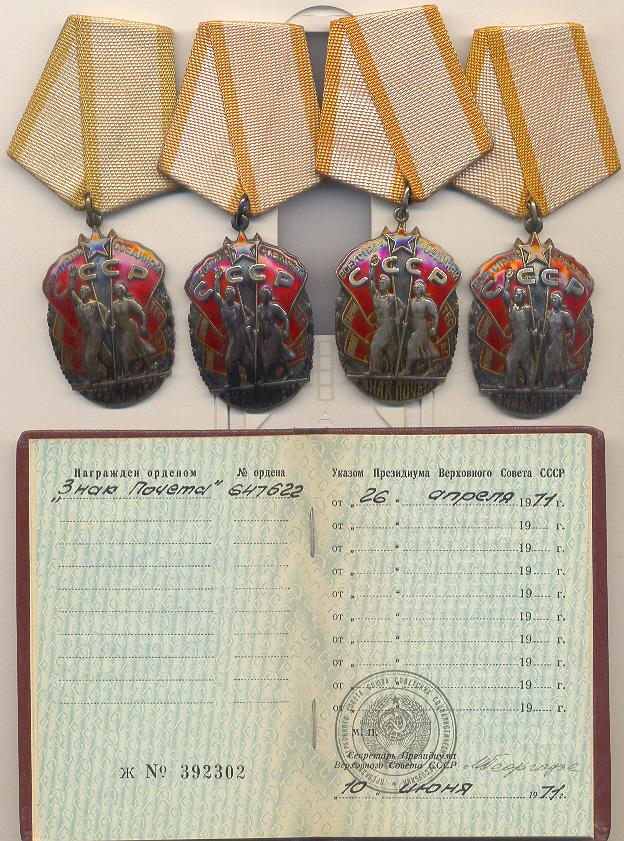 СССР
СССР
СССР
СССР
ЗНАК ПОЧЕТА
Награжден орденом № ордена
„Знак Почета" 647622
Указом Президиума Верховного Совета СССР
от „ 26 “ апреля 1971 г.
от „ “ 19 г.
от „ “ 19 г.
от „ “ 19 г.
от „ “ 19 г.
от „ “ 19 г.
от „ “ 19 г.
от „ “ 19 г.
от „ “ 19 г.
от „ “ 19 г.
М. П.
Секретарь Президиума
Верховного Совета СССР
„ 10 “ июня 1971 г.
Ж № 392302